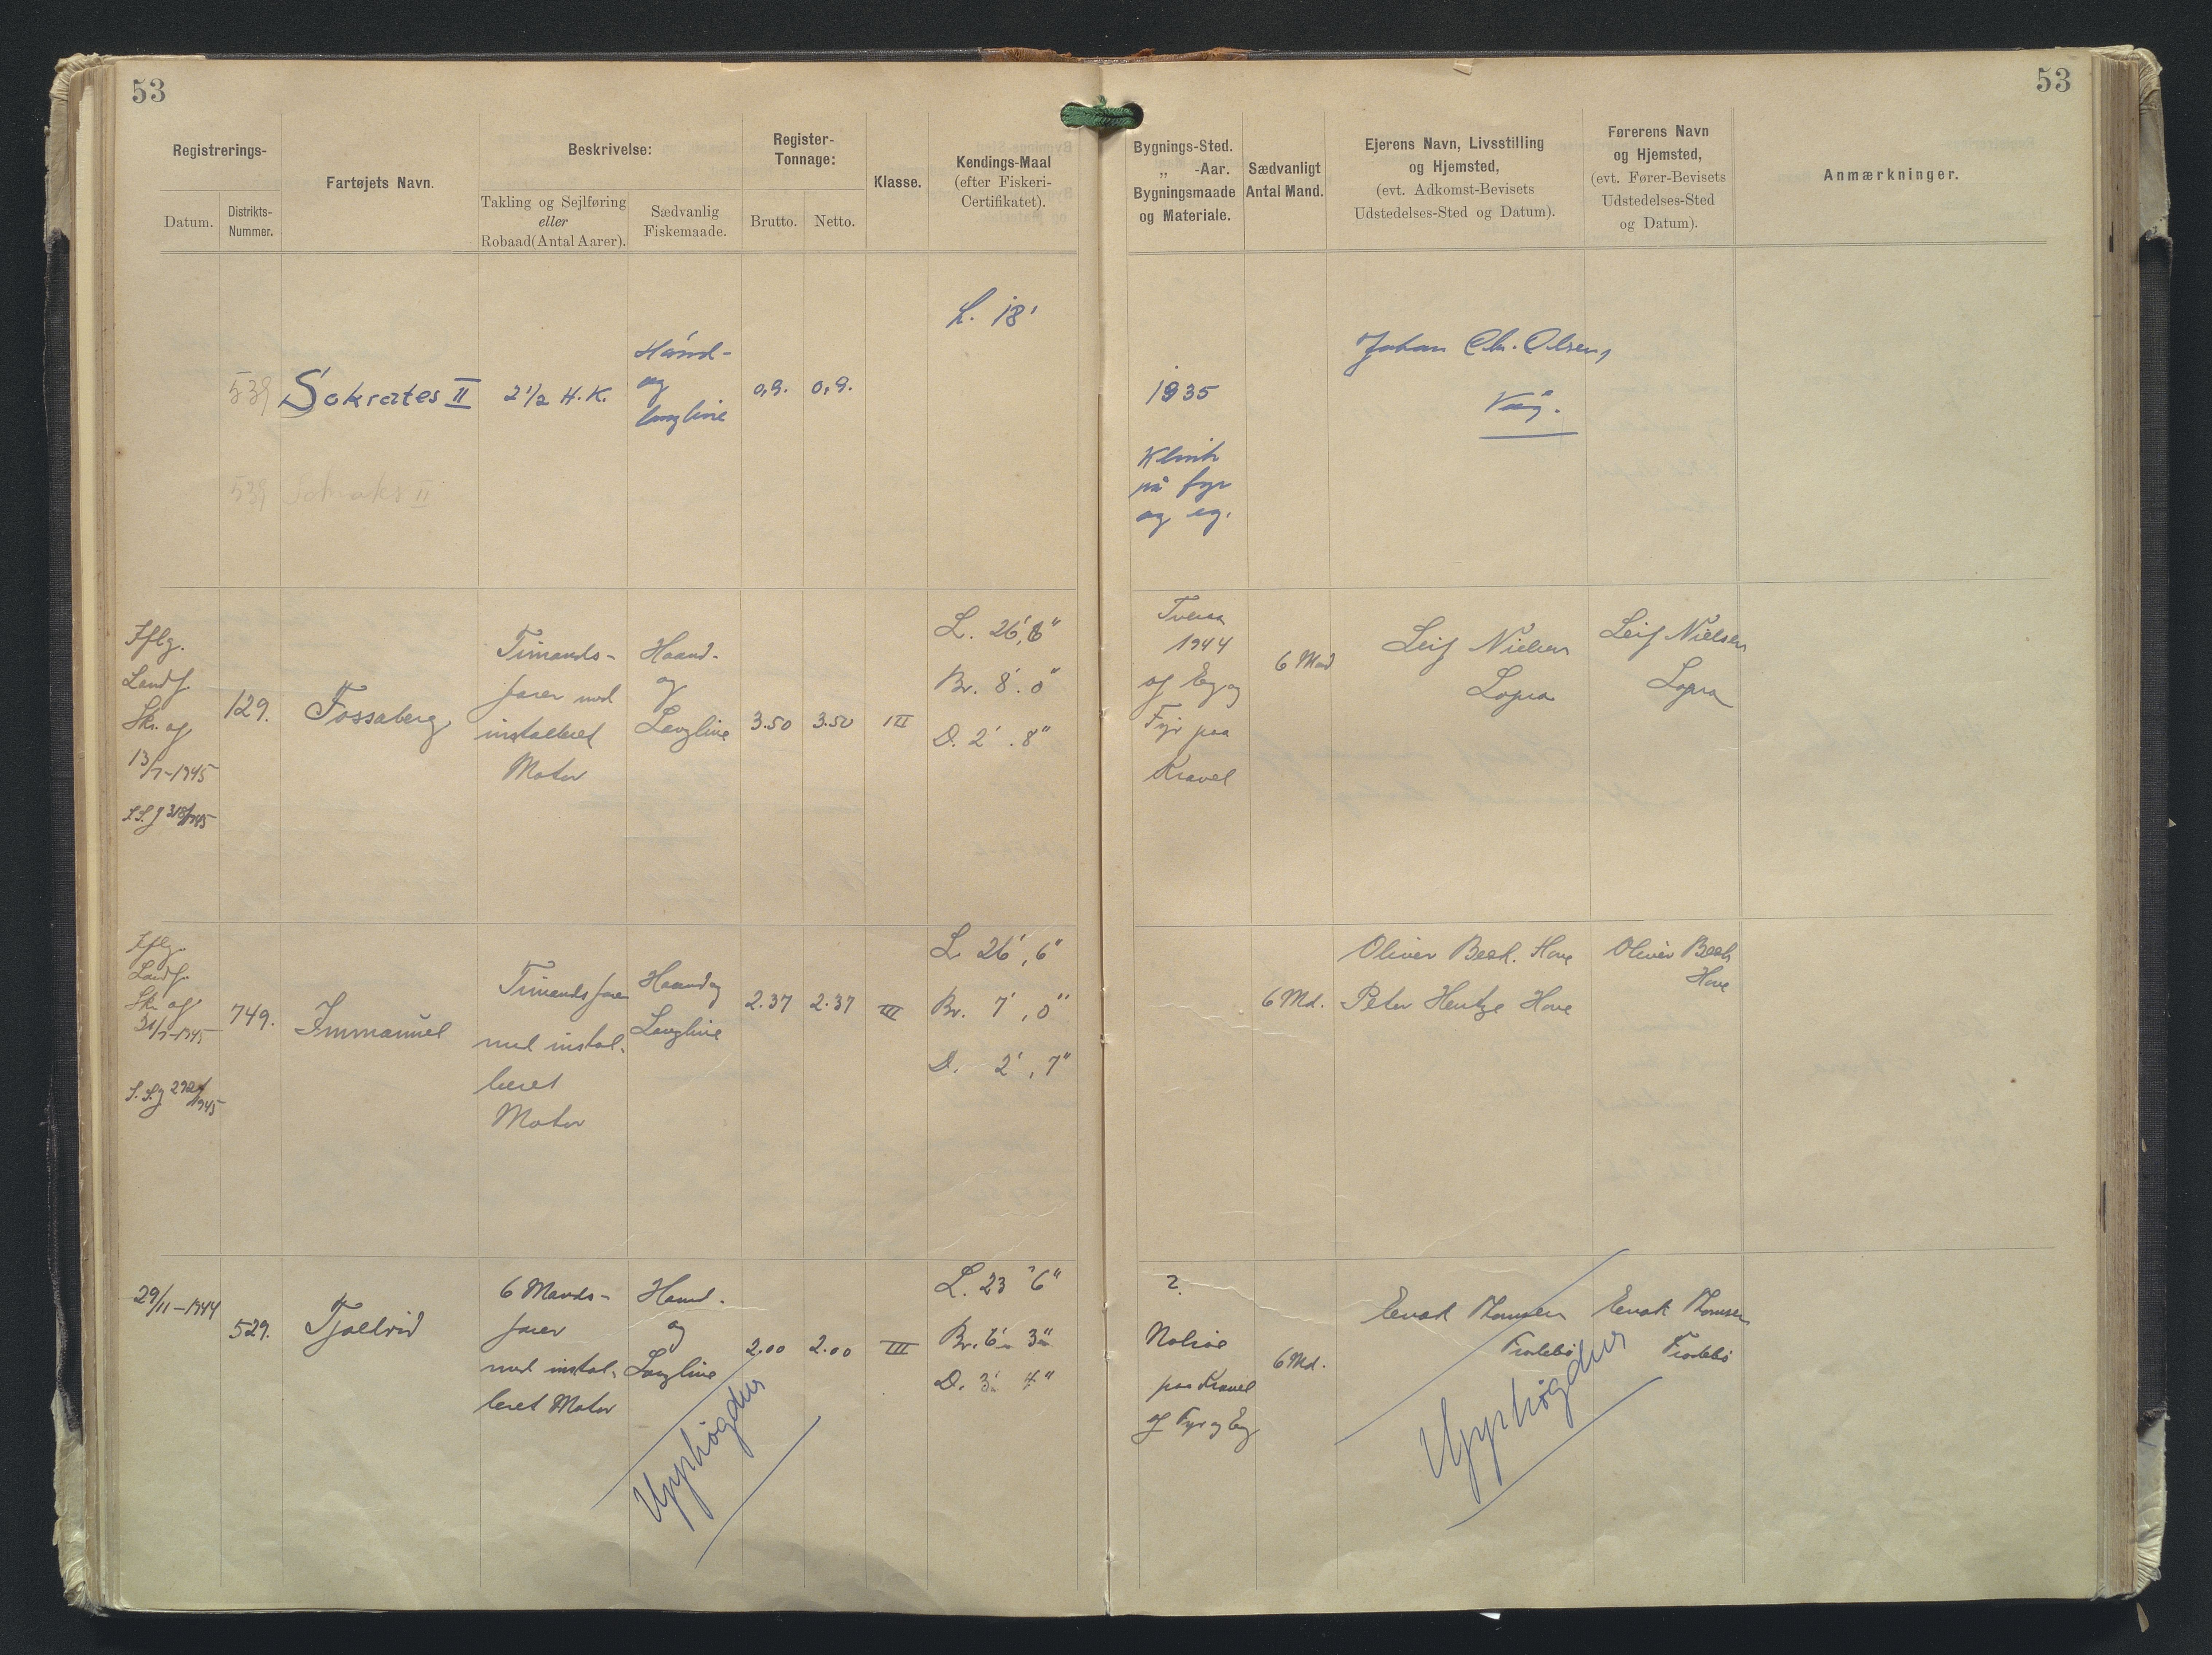 53
53
Registrerings-
Datum.
Distrikts-
Nummer.
Fartøjets Navn.
Beskrivelse:
Takling og Sejlføring
eller
Robaad (Antal Aarer).
Sædvanlig
Fiskemaade.
Register-
Tonnage:
Brutto.
Netto.
Klasse.
Kendings-Maal
(efter Fiskeri-
Certifikatet).
Bygnings-Sted.
„ -Aar.
Bygningsmaade
og Materiale.
Sædvanligt
Antal Mand.
Ejerens Navn, Livsstilling
og Hjemsted,
(evt. Adkomst-Bevisets
Udstedelses-Sted og Datum).
Førerens Navn
og Hjemsted,
(evt. Fører-Bevisets
Udstedelses-Sted
og Datum).
Anmærkninger.
539
Sokrates II
2 1/2 H.K.
Hånd-
og
langline
0,9.
0,9.
L. 18'
1935
Klink
på fyr
og eg.
Johan Chr. Olsen,
Våg.
539 Sokrates II
Iflg.
Landf.
Skr. af
13/7-1945
129.
Fossaberg
Timands-
farer med
installeret
Motor
Haand-
og
Langline
3.50
3.50
III
L. 26', 6"
Br. 8'. 0"
D. 2'. 8"
Tveraa
1944
af Eg og
Fyr paa
Kravel
6 Mand
Leif Nielsen
Lopra
Leif Nielsen
Lopra
Iflg.
Landf.
Skr. af
31/7-1945
749.
Immanuel
Timandsfarer
med instal-
leret
Motor
Haand og
Langline
2.37
2.37
III
L. 26', 6"
Br. 7', 0"
D. 2', 7"
6 Md.
Oliver Beck. Hove
Peter Hentze Hove
Oliver Beck
Hove
29/11-1944
529.
Tjaldrid
6 Mands-
farer
med instal-
leret Motor
Haand-
og
Langline
2.00
2.00
III
L. 23' 6"
Br. 6' 3"
D. 3' 4"
Upphøgdur
?
Nolsøe
paa Kravel
af Fyr og Eg
6 Md.
Enok Thomsen
Froðebø
Enok Thomsen
Froðebø
Upphøgdur